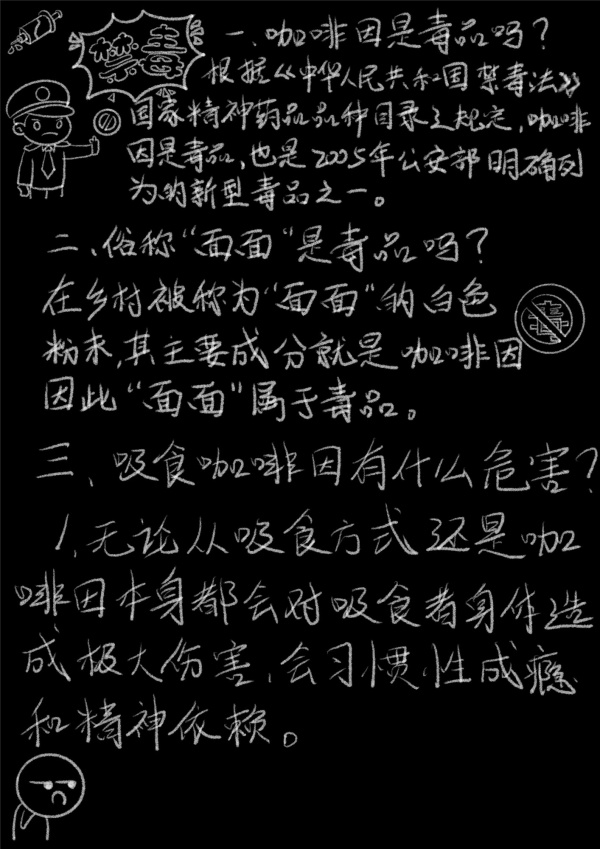 禁毒
一、咖啡因是毒品吗?
根据《中华人民共和国禁毒法》
国家精神药品品种目录之规定,咖啡
因是毒品,也是2005年公安部明确列
为的新型毒品之一。
二、俗称“面面”是毒品吗?
在乡村被称为“面面”的白色
粉末,其主要成分就是咖啡因
因此“面面”属于毒品。
毒
三、吸食咖啡因有什么危害?
1.无论从吸食方式还是咖
啡因本身都会对吸食者身体造
成极大伤害,会习惯性成瘾
和精神依赖。